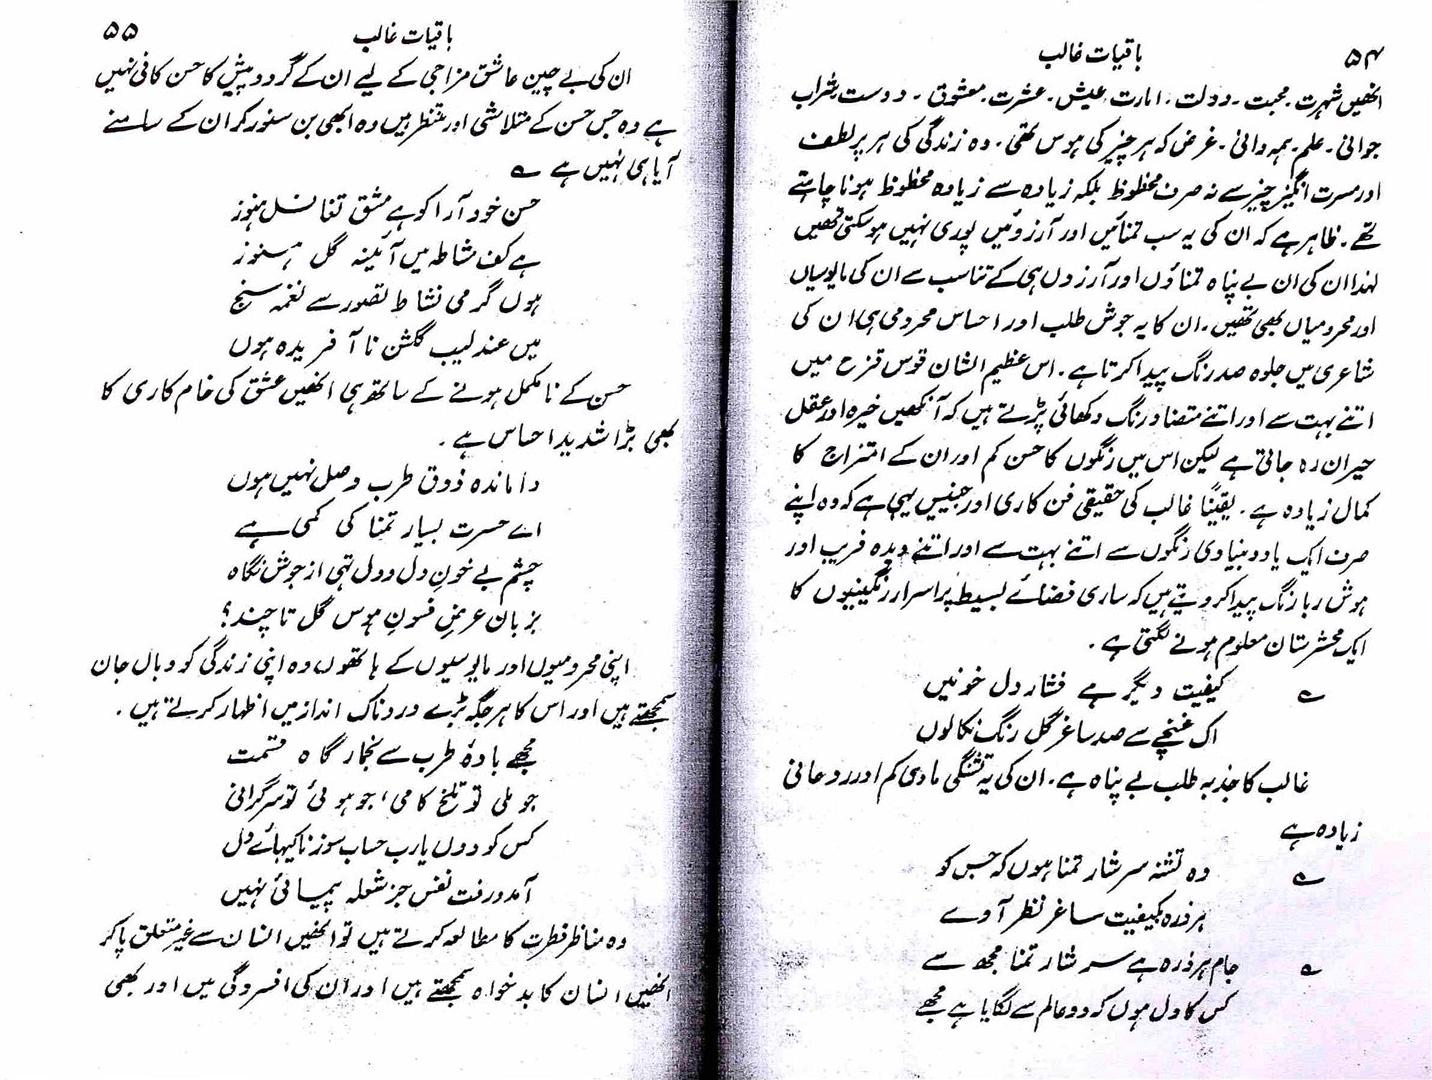 ۵۴
باقیات غالب
انھیں شہرت۔ محبت۔ دولت۔ امارت۔ عیش۔ عشرت۔ معشوق۔ دوست۔ شراب
جوانی۔ علم۔ ہمہ دانی۔ غرض کہ ہر چیز کی ہوس تھی۔ وہ زندگی کی ہر پر لطف
اور مسرت انگیز چیز سے نہ صرف محظوظ بلکہ زیادہ سے زیادہ محظوظ ہونا چاہتے
تھے۔ ظاہر ہے کہ ان کی یہ سب تمنائیں اور آرزوئیں پوری نہیں ہو سکتی تھیں
لہٰذا ان کی ان بے پناہ تمناؤں اور آرزوں ہی کے تناسب سے ان کی مایوسیاں
اور محرومیاں بھی تھیں۔ ان کا یہ جوش طلب اور احساس محرومی ہی ان کی
شاعری میں جلوہ صد رنگ پیدا کرتا ہے۔ اس عظیم الشان قوس قزح میں
اتنے بہت سے اور اتنے متضاد رنگ دکھائی پڑتے ہیں کہ آنکھیں خیرہ اور عقل
حیران رہ جاتی ہے لیکن اس میں رنگوں کا حسن کم اور ان کے امتزاج کا
کمال زیادہ ہے۔ یقیناً غالب کی حقیقی فن کاری اور جینیس یہی ہے کہ وہ اپنے
صرف ایک یا دو بنیادی رنگوں سے اتنے بہت سے اور اتنے دیدہ فریب اور
ہوش ربا رنگ پیدا کر دیتے ہیں کہ ساری فضائے بسیط پراسرار رنگینیوں کا
ایک محشرستان معلوم ہونے لگتی ہے۔
؎ کیفیت دیگر ہے فشار دل خونیں
اک غنچے سے صد ساغر گل رنگ نکالوں
غالب کا جذبہ طلب بے پناہ ہے۔ ان کی یہ تشنگی مادی کم اور روحانی
زیادہ ہے
؎ وہ تشنہ سرشار تمنا ہوں کہ جس کو
ہر ذرہ بکیفیت ساغر نظر آوے
؎ جام ہر ذرہ ہے سرشار تمنا مجھ سے
کس کا دل ہوں کہ دو عالم سے لگایا ہے مجھے
باقیات غالب
۵۵
ان کی بے چین عاشق مزاجی کے لیے ان کے گرد و پیش کا حسن کافی نہیں
ہے وہ جس حسن کے متلاشی اور منتظر ہیں وہ ابھی بن سنور کر ان کے سامنے
آیا ہی نہیں ہے ؎
حسن خود آرا کو ہے مشق تغافل ہنوز
ہے کف مشاطہ میں آئینہ گل ہنوز
ہوں گرمی نشاط تصور سے نغمہ سنج
میں عندلیب گلشن نا آفریدہ ہوں
حسن کے نامکمل ہونے کے ساتھ ہی انھیں عشق کی خام کاری کا
بھی بڑا شدید احساس ہے۔
داماندہ ذوق طرب وصل نہیں ہوں
اے حسرت بسیار تمنا کی کمی ہے
چشم بے خونِ دل و دل تہی از جوش نگاہ
بزبان عرضِ فسونِ ہوس گل تا چند؟
اپنی محرومیوں اور مایوسیوں کے ہاتھوں وہ اپنی زندگی کو وبال جان
سمجھتے ہیں اور اس کا ہر جگہ بڑے دردناک انداز میں اظہار کرتے ہیں۔
مجھے بادۂ طرب سے بخمار گاہ قسمت
جو ملی تو تلخ کامی، جو ہوئی تو سرگرانی
کس کو دوں یارب حساب سوزناکیہائے دل
آمد و رفت نفس جز شعلہ پیمائی نہیں
وہ مناظر فطرت کا مطالعہ کرتے ہیں تو انھیں انسان سے غیر متعلق پا کر
انھیں انسان کا بدخواہ سمجھتے ہیں اور ان کی افسردگی میں اور بھی